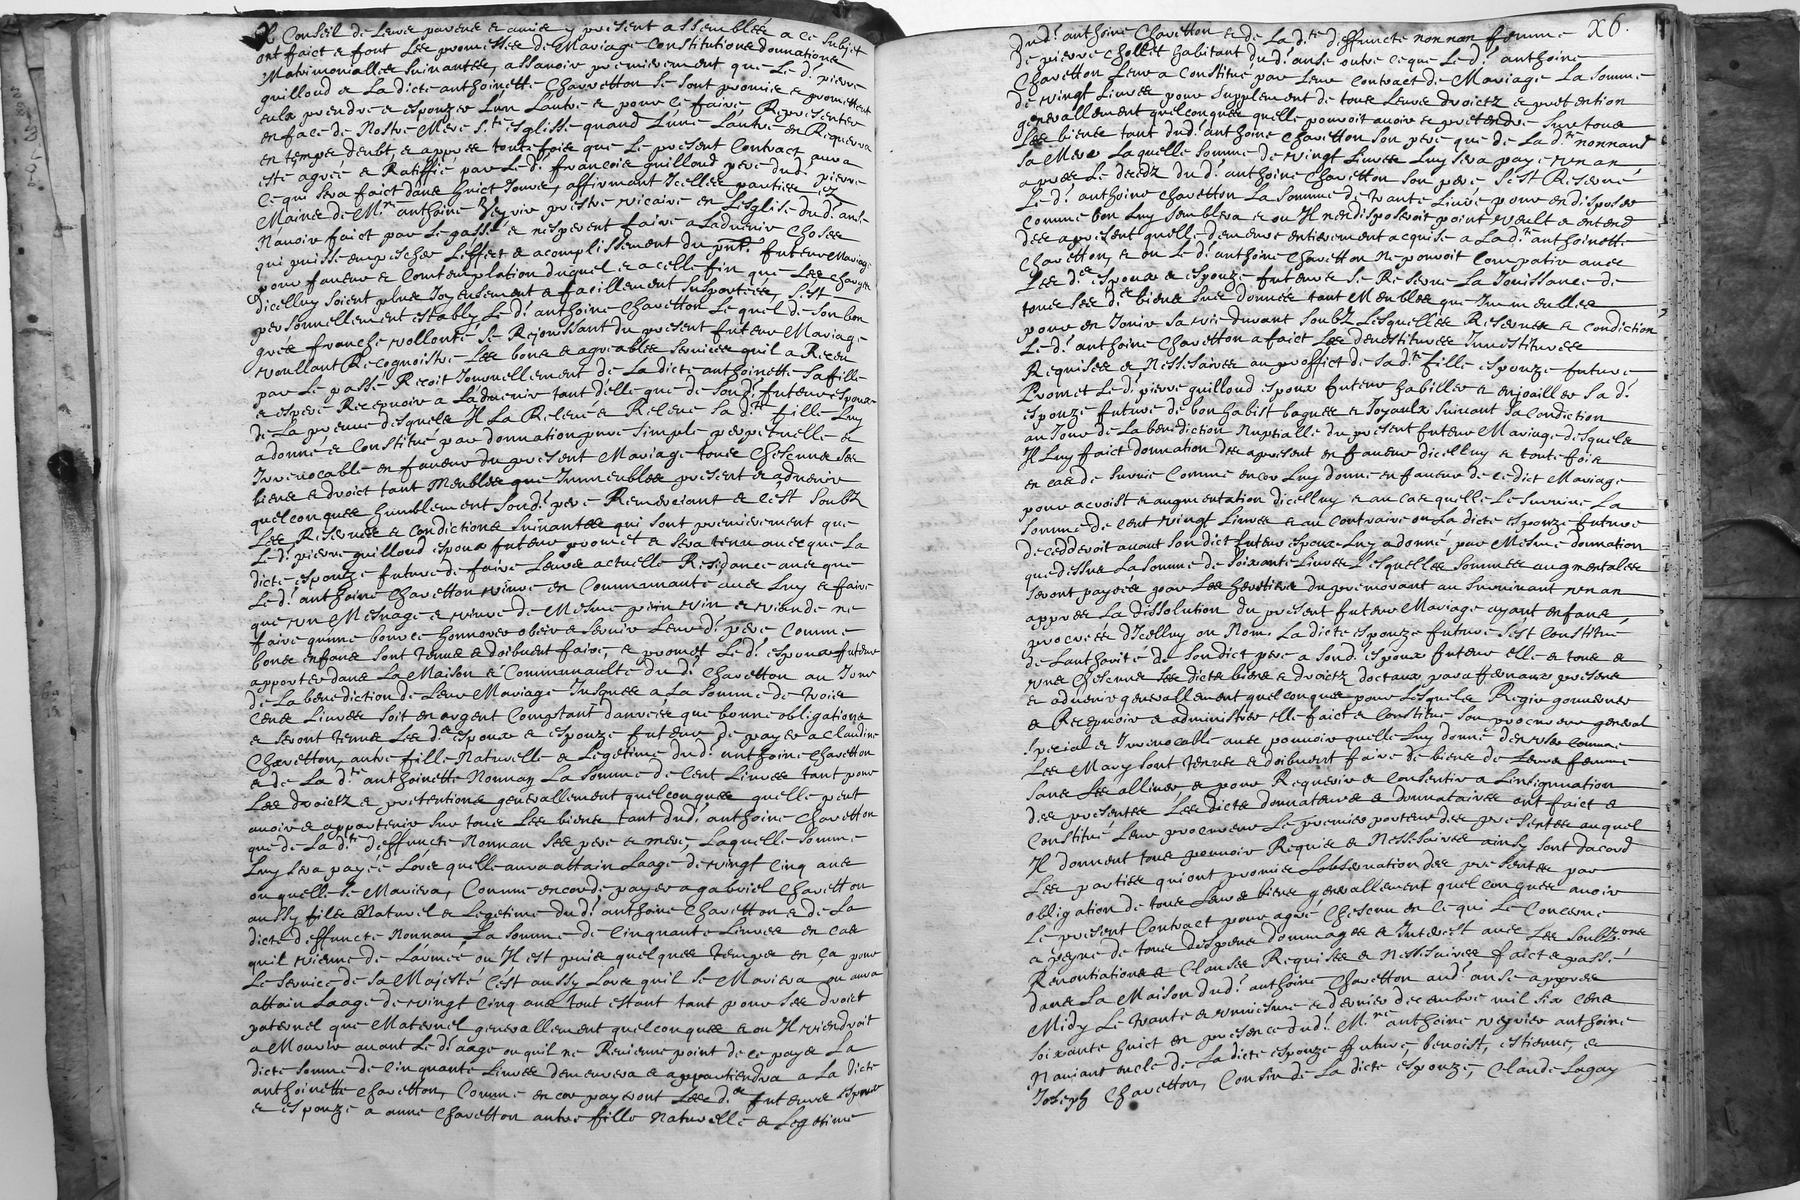 & Conseil de Leurs parens & amis y present assemblés a ce subjet
ont faict & font Les promesses de Mariage Constitutions donnations
Matrimonialles suivantes, assavoir premierement que Le d.t pierre
guilloud & La dicte anthoinette Chavetton se sont promis & promettent
eulx prendre & espouzer L'un Lautre & pour ce faire Representer
en face de Nostre Mere s.te esglisse quand L'une L'autre en Requerra
en temps deubt, & appres toutefois que Le present Contract aura
esté agréé & Ratiffié par Led.t francois guilloud pere dud.t pierre
ce qui sera faict dans huict Jours, affirmant Icelles parties ez
Maines de M.re anthoine Veyvir prestre vicaire en L'esglise dud.t anse
Navoir faict par Le passé & nesperent faire a Ladvenir choses
qui puisse empescher L'effect & acomplissement du pnt. futeur Mariage
pour faveur & Comtemplation duquel & a celle fin que Les charges
dicelluy soient plus Joyeusement & facillement suportées, s'est
personnellement estably Le d.t anthoine Chavetton Le quel de son bon
gré & franche vollonté se Rejouissant du present futeur Mariage
voullant Recognoistre Les bons & agreables services quil a Receu
par Le passé Recoit Journellement de La dicte anthoinette sa fille
& espere Recepvoir a Ladvenir tant delle que de son d.t futeur espoux
de La preuve desquels Il La Relevé & Releve sa d.te fille Luy
a donné & Constitué par donnation pure simple perpetuelle &
Irrevocable en faveur du present Mariage tous & chescuns ses
biens & droict tant Meubles que Immeubles present & advenir
quelconques humblement sond.t pere Remerciant & c'est soubz
Les Reserves & Condictions suivantes qui sont premierement que
Le d.t pierre guilloud espoux futeur promet & sera tenu avecque La
dicte espouze future de faire Leurs actuelle Residance avec que
Le d.t anthoine Chavetton vivre en Communauté avec Luy & faire
que un Mesnage & vivre de Mesme pain vin & viande ne
faire qu'une bource honnorer obeir & servir Leur d.t pere Comme
bons enfans sont tenus & doibvent faire, & promet Le d.t espoux futeur
apporter dans La Maison & Communaulté du d.t Chavetton au Jour
de La benediction de Leur Mariage Jusques a La somme de trois
Cens Livres soit en argent Comptant danrées que bonne obligations
& seront tenus Les d.s espoux & espouze futeur de payer a Claudine
Chavetton, autre fille Naturelle & Legetime dud.t anthoine Chavetton
& de La d.te anthoinette Nonnay La somme de Cent Livres tant pour
Les droictz & pretentions generallement quelconques quelle peut
avoir & appartenir sur tous Les biens tant dud.t anthoine Chavetton
que de La d.te deffuncte Nonnan ses pere & mere, Laquelle somme
Luy sera payée Lors quelle aura attain Laage de vingt Cinq ans
ou quelle se Mariera, Comme encor de payer a gabriel Chavetton
aussy filz Naturel & Legetime dud.t anthoine Chavetton & de La
dicte deffuncte Nonnan La somme de Cinquante Livres en Cas
quil vienne de L'armée ou Il est puis quelques temps en ça pour
Le service de sa Majesté c'est aussy Lors quil se Mariera ou aura
attain Laage de vingt Cinq ans tout estant tant pour ses droict
paternel que Maternel generallement quelconques & ou Il viendroit
a Mourir avant Le d.t aage ou quil ne Revienne point de ce paye La
dicte somme de Cinquante Livres demeurera & appartiendra a La dicte
anthoinette Chavetton, Comme encor payeront Les d.s futeurs espoux
& espouze a anne Chavetton autre fille Naturelle & Legetime
x6.
dud.t anthoine Chavetton & de La d.te deffuncte nonnan femme
de pierre Chollet habitant dud.t anse outre ce que Led.t anthoine
Chavetton Leur a Constitué par Leur Contract de Mariage La somme
de vingt Livres pour supplement de tous Leurs droictz & pretention
generallement quelconques quelle pouvoit avoir & pretendre sur tous
Les biens tant dud.t anthoine Chavetton son pere que de La d.te nonnand
sa Mere Laquelle somme de vingt Livres Luy sera paye un an
apres Le decedz dud.t anthoine Chavetton son pere s'est Reservé
Le d.t anthoine Chavetton La somme de trante Livres pour en disposer
comme bon Luy semblera & ou Il n'en disposeroit point veult & entend
des a present quelle demeure entierement acquise a La d.te anthoinette
Chavetton, & ou Le d.t anthoine Chavetton ne pouroit Compatir avec
Les d.s espoux & espouze futeurs se Reserve La Jouissance de
tous ses d.s biens sus donnés tant Meubles que Immeubles
pour en Jouir sa vie durant soubz Lesquelles Reserves & condiction
Le d.t anthoine Chavetton a faict Les devestitures Investitures
Requises & Nessesaires au proffict de sa d.te fille espouze future
Promet Le d.t pierre guilloud espoux futeur habiller & enjoailler sa d.t
espouze future de bon habist bagues & Joyaulx suivant sa Condiction
au Jour de La benediction Nuptialle du present futeur Mariage desquels
Il Luy faict donnation des a present en faveur dicelluy & toutefois
en cas de survie Comme encor Luy donne en faveur de ce dict Mariage
pour acroist & augmentation dicelluy & au cas quelle Le survive La
somme de Cent vingt Livres & au contraire ou La dicte espouze future
decedderoit avant son dict futeur espoux Luy a donné par Mesme donnation
que dessus La somme de soixante Livres Lesquelles sommes augmentales
seront payées par Les heretiers du premourant au survivant un an
appres La dissolution du present futeur Mariage ayant enfans
procreés d'Icelluy ou Non. La dicte espouze future s'est Constitué
de Lauthorité de son dict pere a son d. espoux futeur elle & tous &
uns Chescuns ses dicts biens & droictz doctaux parafernaux present
& advenir generallement quelconques pour Lesquels Regir gouverner
& Recepvoir & administrer elle faict & Constitue son procureur general
special & Irrevocable avec pouvoir quelle Luy donne den user comme
Les Mary sont tenus & doibvent faire de biens de Leurs femme
sans Les alliner & pour Requerir & Consentir a Linsignuation
des presentes Les dicts donnateurs & donnataires ont faict &
Constitué Leur procureur Le premier porteur des presentes auquel
Il donnent tous pouvoir Requis & Nessesaires ainsy sont dacord
Les parties qui ont promis Lobservation des presentes par
obligation de tous Leurs biens generallement quelconques avoir
Le present Contract pour agré Chescun en ce qui Le Concerne
a peyne de tous despens dommages & Interest avec Les soubz.ons
Renontiations & Clauses Requises & Nessesaires faict & passé
dans La Maison dud.t anthoine Chavetton aud.t anse appres
Midy Le trante & uniesme & dernier decembre mil six Cens
soixante huict en presence dud.t M.re anthoine veyvier anthoine
Naviant oncle de La dicte espouze future, benoist, estienne, &
Joseph Chavetton, Cousin de La dicte espouze, Claude Lagay